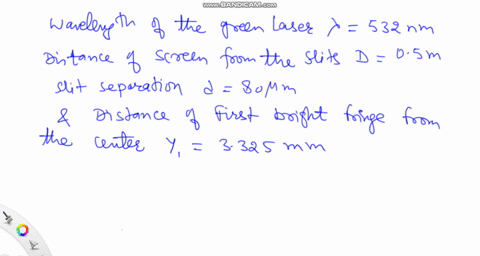 www.BANDICAM.com
Wavelength of the green laser λ = 532 nm
Distance of screen from the slits D = 0.5 m
slit separation d = 80 μm
& Distance of first bright fringe from
the center Y₁ = 3.325 mm